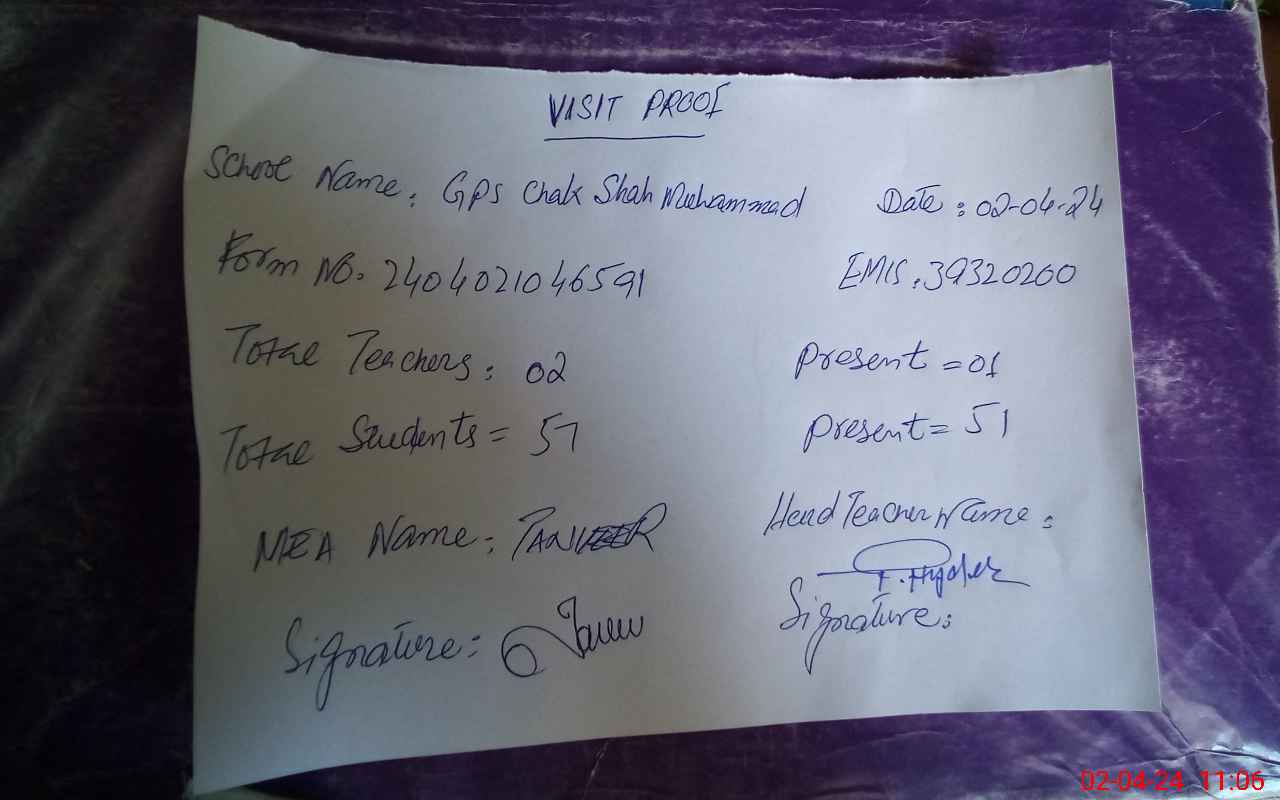 VISIT PROOF
School Name: GPS Chak Shah Muhammad Date: 02-04-24
Form No. 2404021046591 EMIS: 39320200
Total Teachers: 02 Present = 01
Total Students = 57 Present = 51
MEA Name: TANVEER Head Teacher Name:
Signature: Signature:
02-04-24 11:06